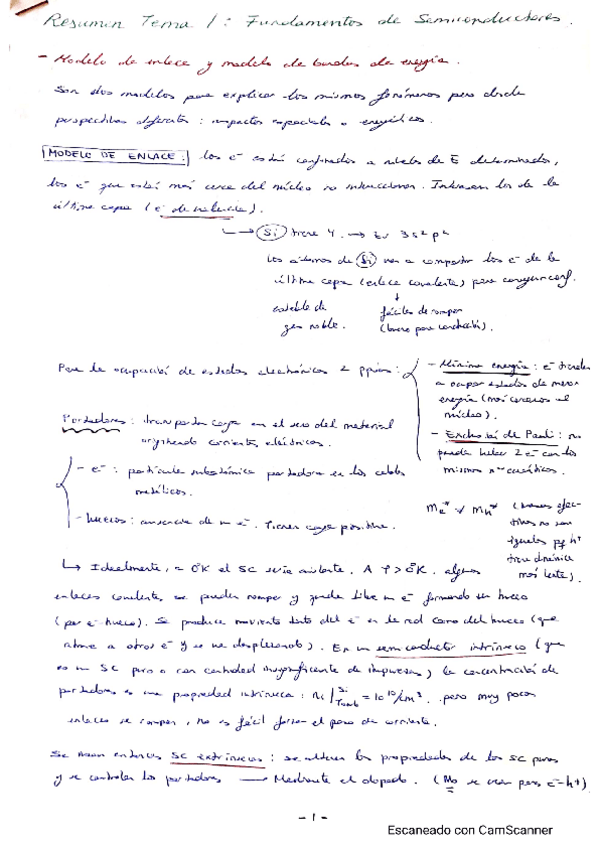 Resumen Tema 1: Fundamentos de Semiconductores.
- Modelo de enlace y modelo de bandas de energía.
Son dos modelos para explicar los mismos fenómenos pero desde
perspectivas diferentes: aspectos espaciales o energéticos.
MODELO DE ENLACE: los e- están confinados a niveles de E determinados,
los e- que están más cerca del núcleo no interaccionan. Interesan los de la
última capa (e- de valencia).
Si tiene 4. → En 3s² p²
Los átomos de Si van a compartir los e- de la
última capa (enlace covalente) para conseguir conf.
estable de
gas noble.
fáciles de romper
(bueno para conducción).
Para la ocupación de estados electrónicos 2 ppios:
- Mínima energía: e- tienden
a ocupar estados de menor
energía (más cercanos al
núcleo).
- Exclusión de Pauli: no
puede haber 2 e- con los
mismos nº cuánticos.
Portadores: transportan carga en el seno del material
originando corrientes eléctricas.
- e-: partícula subatómica portadora en los cables
metálicos.
- huecos: ausencia de un e-. Tienen carga positiva.
me* ≠ mh*
(masas efec-
tivas no son
iguales pq h+
tiene dinámica
más lenta).
↳ Idealmente, a 0°K el SC sería aislante. A T > 0°K, algunos
enlaces covalentes se pueden romper y queda libre un e- formando un hueco
(par e- hueco). Se produce movimiento tanto del e- en la red como del hueco (que
atrae a otros e- y se va desplazando). En un semiconductor intrínseco (que
es un SC puro o con cantidad insignificante de impurezas) la concentración de
portadores es una propiedad intrínseca: ni |Si Tamb = 10¹⁰/cm³, pero muy pocos
enlaces se rompen, no es fácil forzar el paso de corriente.
Se usan entonces SC extrínsecos: se alteran las propiedades de los SC puros
y se controlan los portadores → Mediante el dopado. (No se crean pares e- - h+)
- 1 -
Escaneado con CamScanner